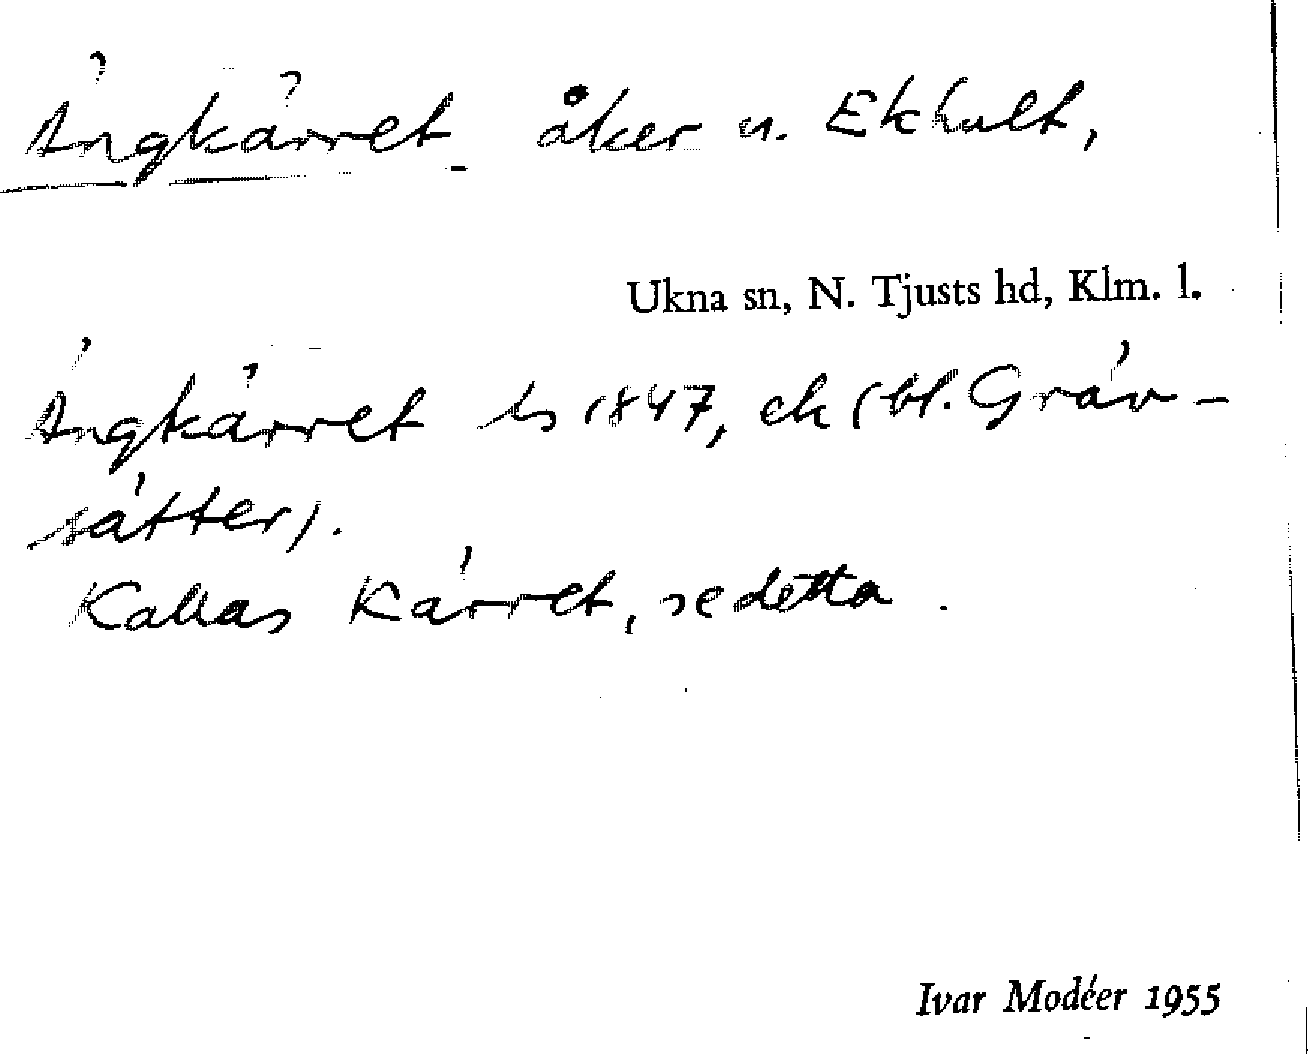 Ängkärret åker u. Ekhult,
Ukna sn, N. Tjusts hd, Klm. l.
Ängkärret ls 1847, ek (bl. Gräv-
sätter).
Kallas Kärret, se detta.
Ivar Modéer 1955